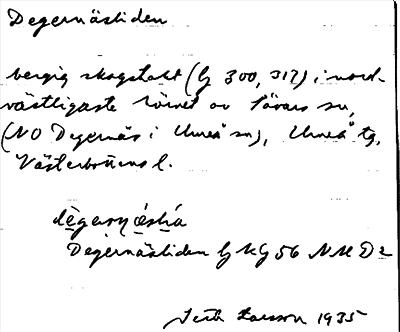 Degernästiden
bergig skogstrakt (G 300, 317) i nord-
västligaste hörnet av Sävars sn,
(NO Degernäs i Umeå sn), Umeå tg,
Västerbottens l.
Degernästiden G KG 56 NM D2
Larsson 1935